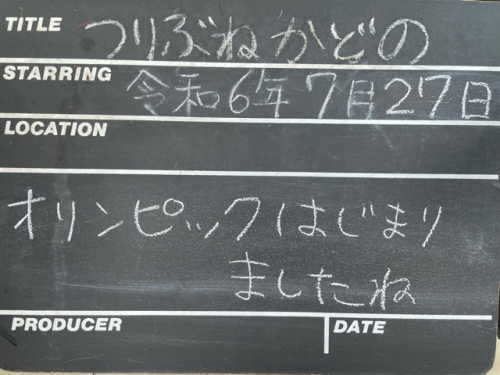 TITLE つりぶねかどの
STARRING 令和6年7月27日
LOCATION
オリンピックはじまり
ましたね
PRODUCER DATE